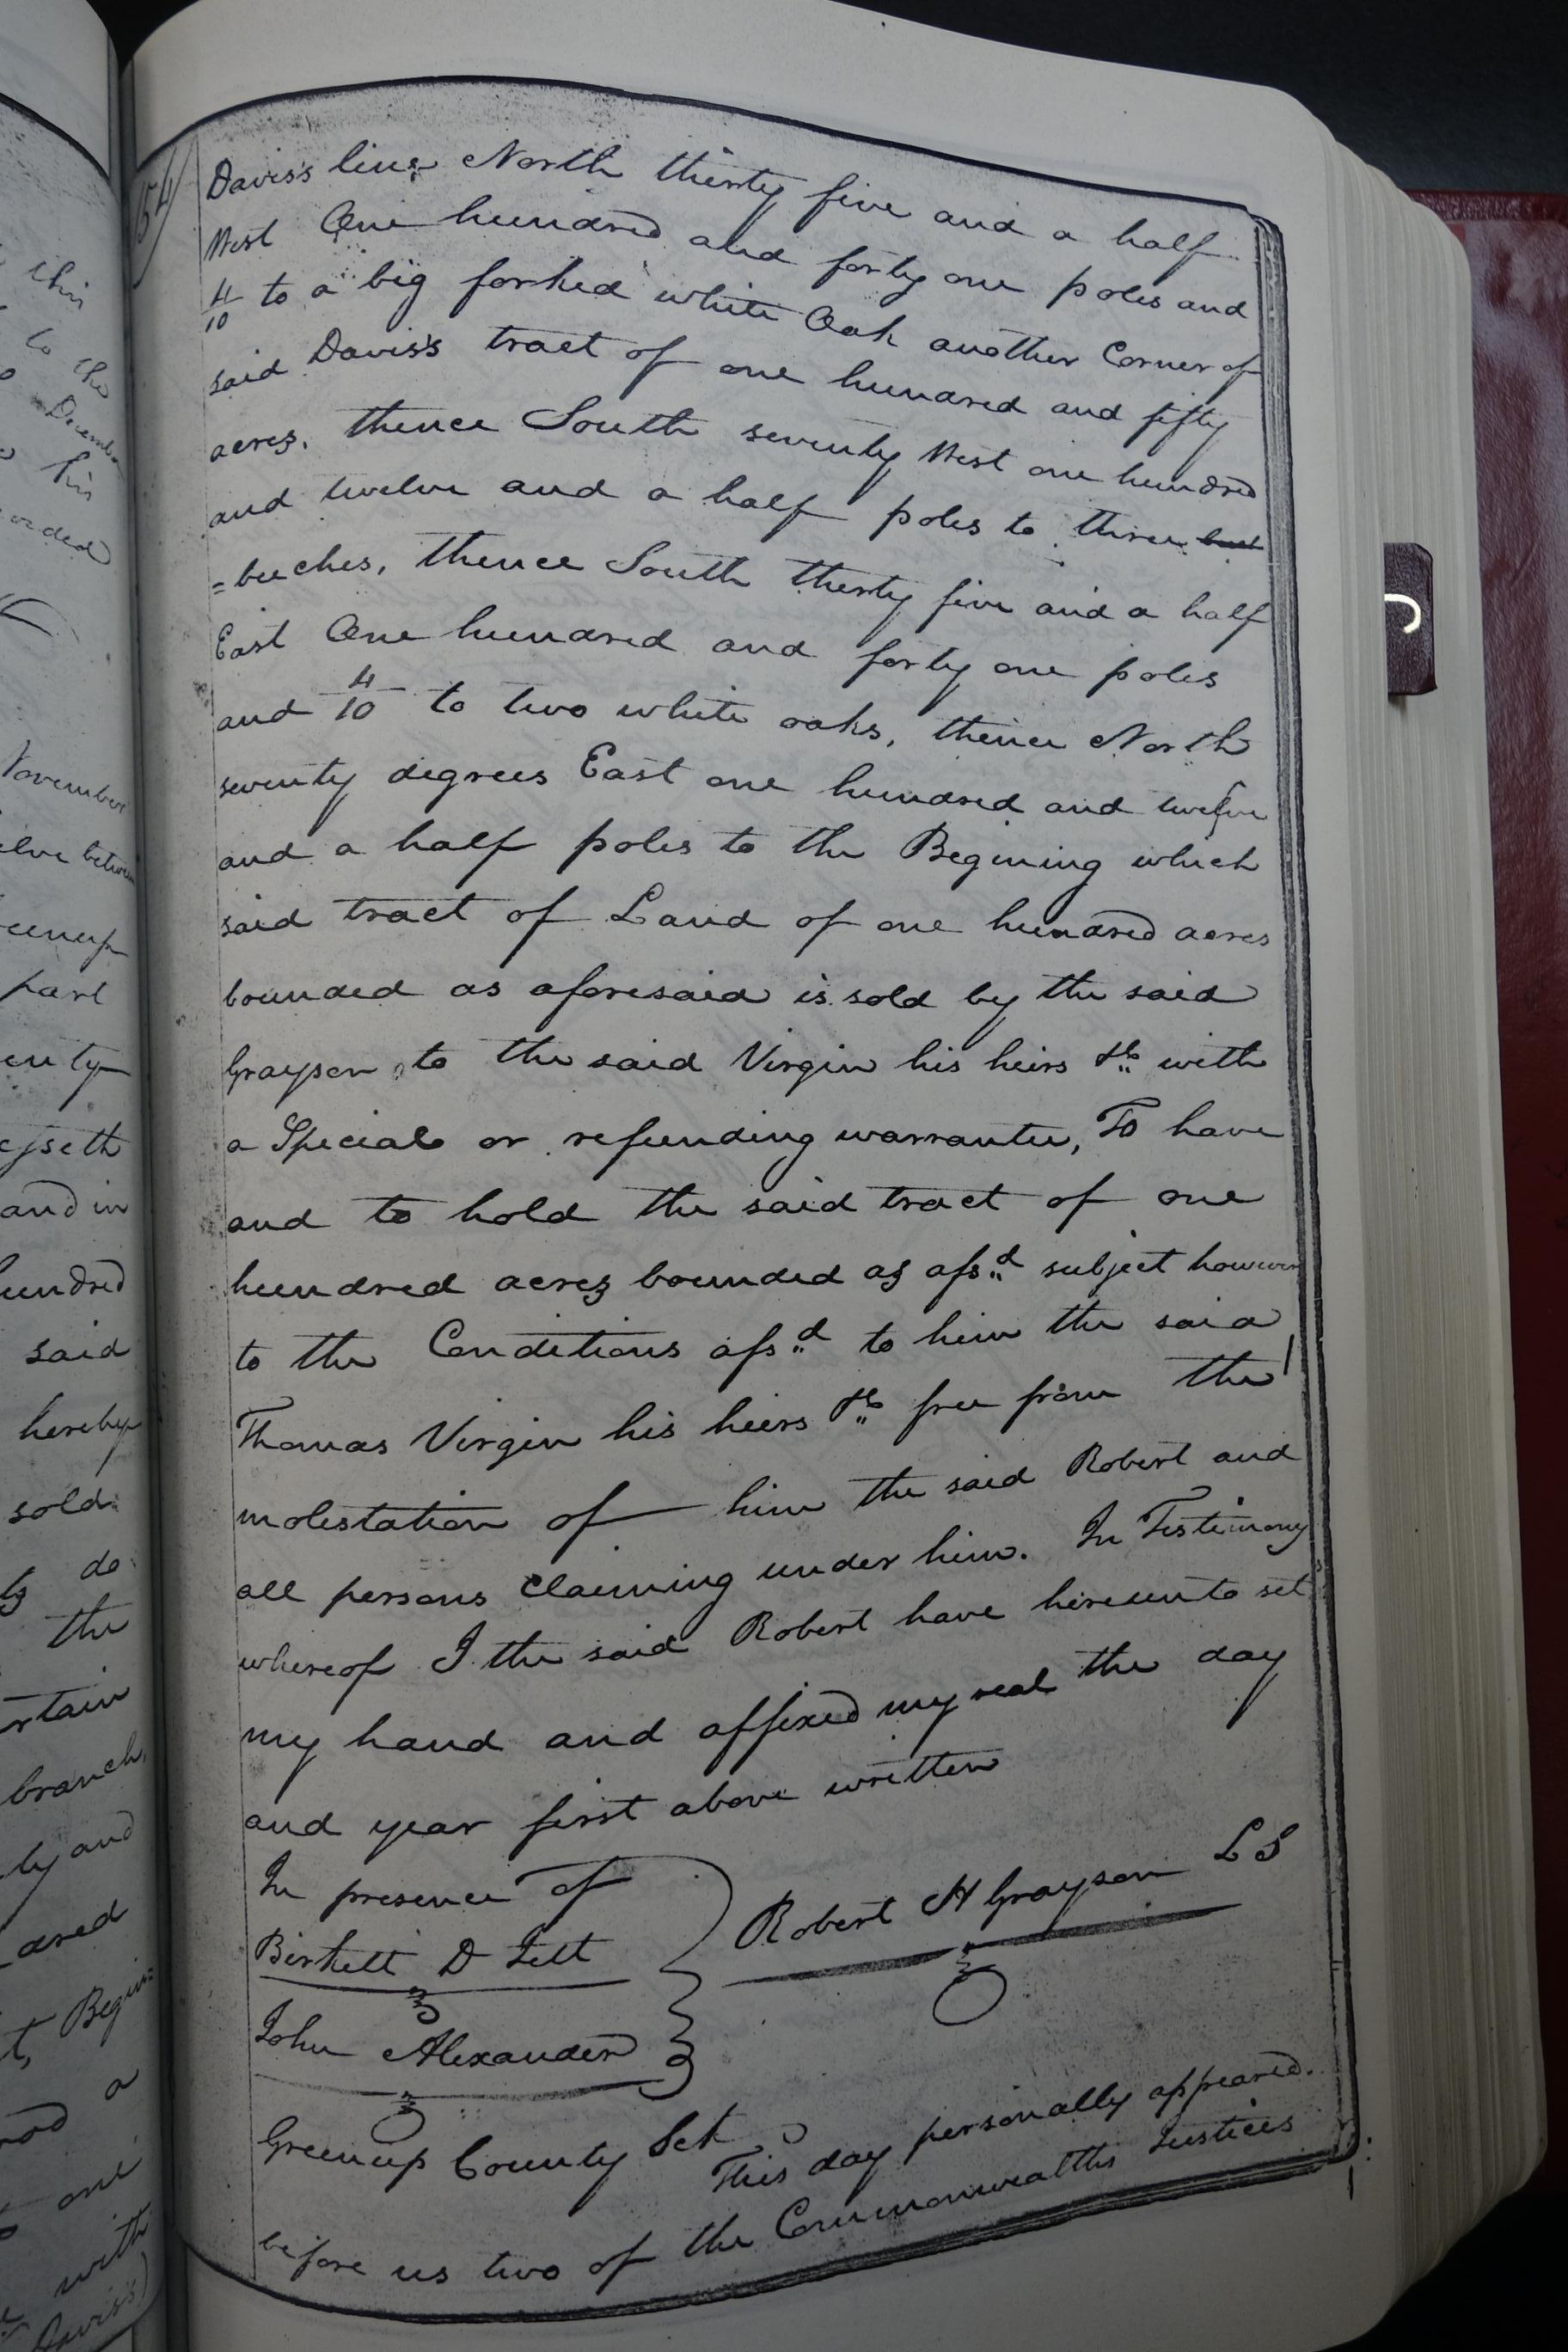 this
to the
Decembe
his
orded
November
elve between
eenup
part
enty
esseth
and in
hundred
said
hereby
sold
do
the
rtain
branch
ly and
ared
t, Begin=
a
one
with
Davis's)
54
Davis's line North thirty five and a half
West One hundred and forty one poles and
4/10 to a big forked white Oak another Corner of
said Davis's tract of one hundred and fifty
acres, thence South seventy West one hundred
and twelve and a half poles to three
=beeches, thence South thirty five and a half
East One hundred and forty one poles
and 4/10 to two white oaks, thence North
seventy degrees East one hundred and twelve
and a half poles to the Begining which
said tract of Land of one hundred acres
bounded as aforesaid is sold by the said
Grayson to the said Virgin his heirs &c with
a Special or refunding warrantee, To have
and to hold the said tract of one
hundred acres bounded as afsd subject however
to the Conditions afsd to him the said
Thomas Virgin his heirs &c free from the
molestation of him the said Robert and
all persons Claiming under him. In Testimony
whereof I the said Robert have hereunto set
my hand and affixed my seal the day
and year first above written
In presence of
Robert H Grayson L S
Birkett D Jett
John Alexander
Greenup County Sct
This day personally appeared
before us two of the Commonwealths Justices